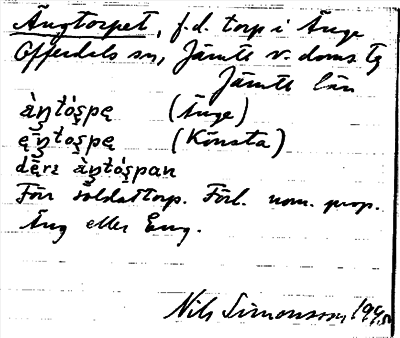 Ängtorpet, f.d. torp i Änge
Offerdals sn, Jämtl v. doms tg
Jämtl län
àŋtòṣpę (Änge)
ęŋtoṣpę (Könsta)
dę̄rz àŋtòṣpan
Förr soldattorp. Förl. nom. prop.
Äng eller Eng.
Nils Simonsson